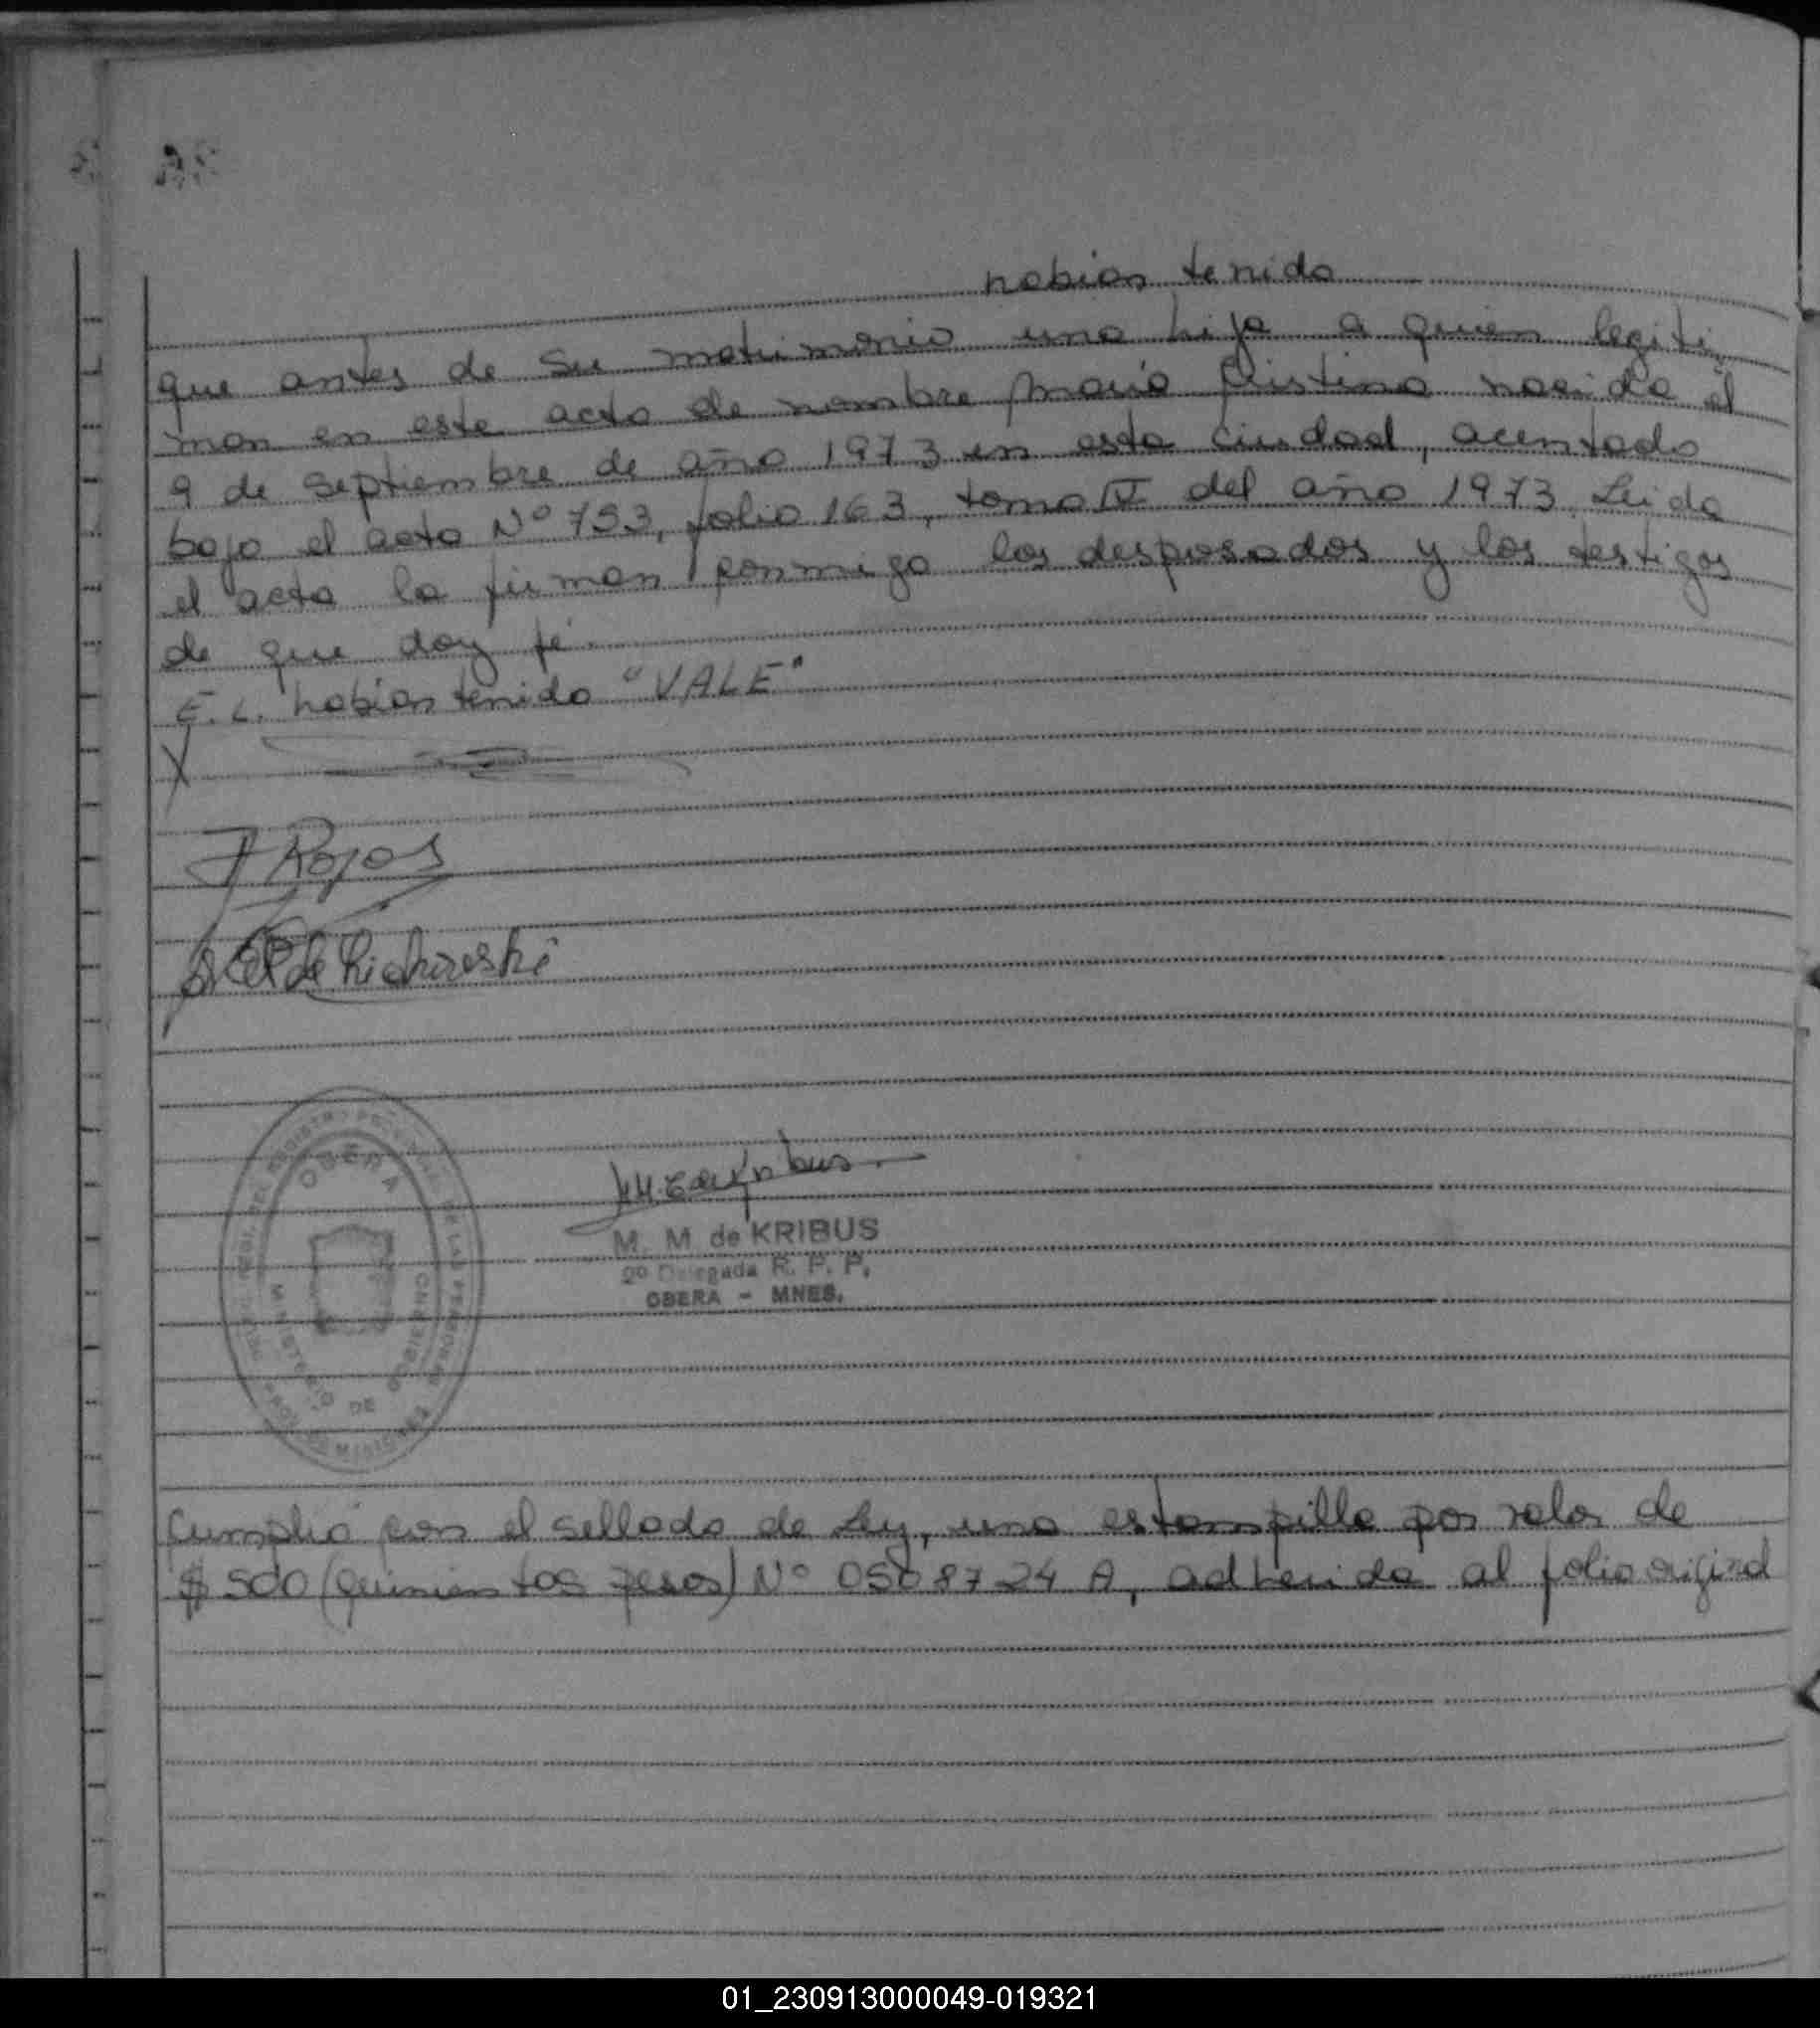 habian tenido
que antes de su matrimonio una hija a quien legiti
man en este acto de nombre Maria Cristina nacida el
9 de septiembre de año 1973 en esta ciudad, acentado
bajo el acta Nº 753, folio 163, tomo IV del año 1973. Leida
el acta la firman conmigo los desposados y los testigos
de que doy fé.
E. L. habian tenido "VALE"
X
Rojas
de
OBERA
MINISTERIO DE GOBIERNO
M. M. de KRIBUS
2º Delegada R. P. P.
OBERA - MNES.
Cumplió con el sellado de Ley, una estampilla por valor de
$ 500 (quinientos pesos) Nº 0508724 A, adherida al folio original
01_230913000049-019321